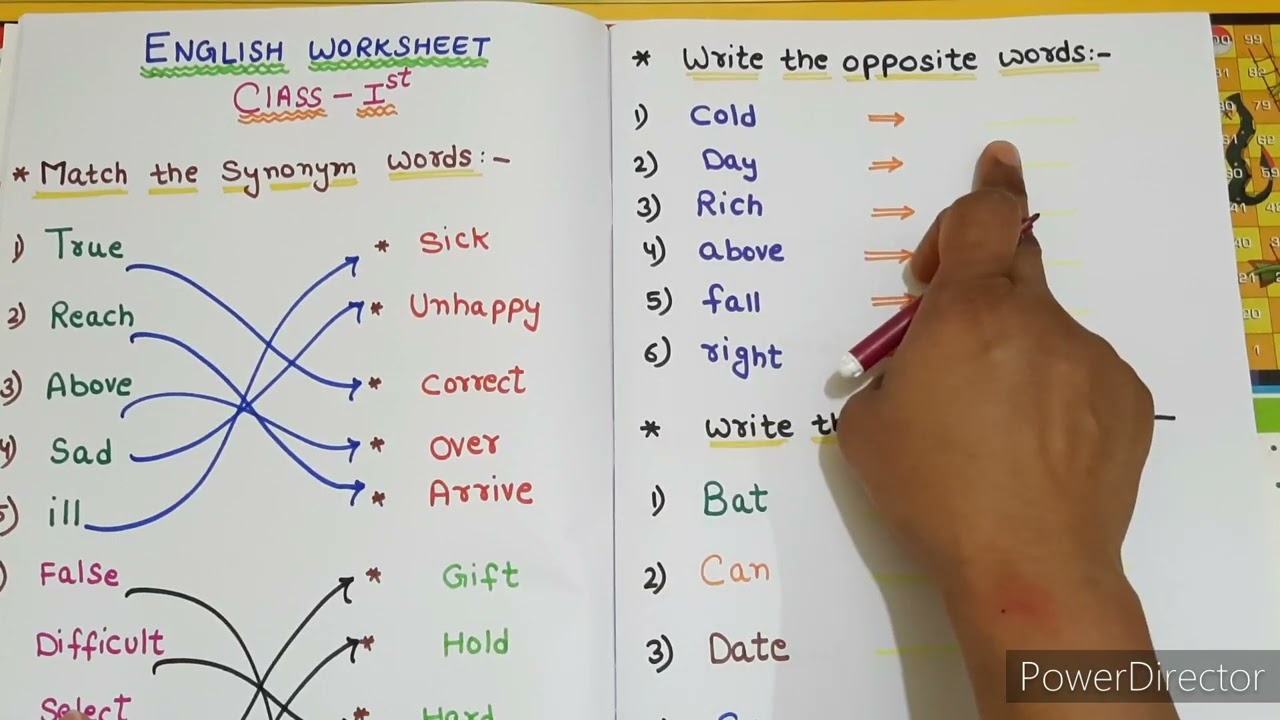 ENGLISH WORKSHEET
Class - Ist
* Match the Synonym words:-
1) True * Sick
2) Reach * Unhappy
3) Above * Correct
4) Sad * Over
5) ill * Arrive
) False * Gift
Difficult * Hold
Select * Hard
* Write the opposite words:-
1) Cold ⇒
2) Day ⇒
3) Rich ⇒
4) above ⇒
5) fall ⇒
6) right
* Write
1) Bat
2) Can
3) Date
PowerDirector